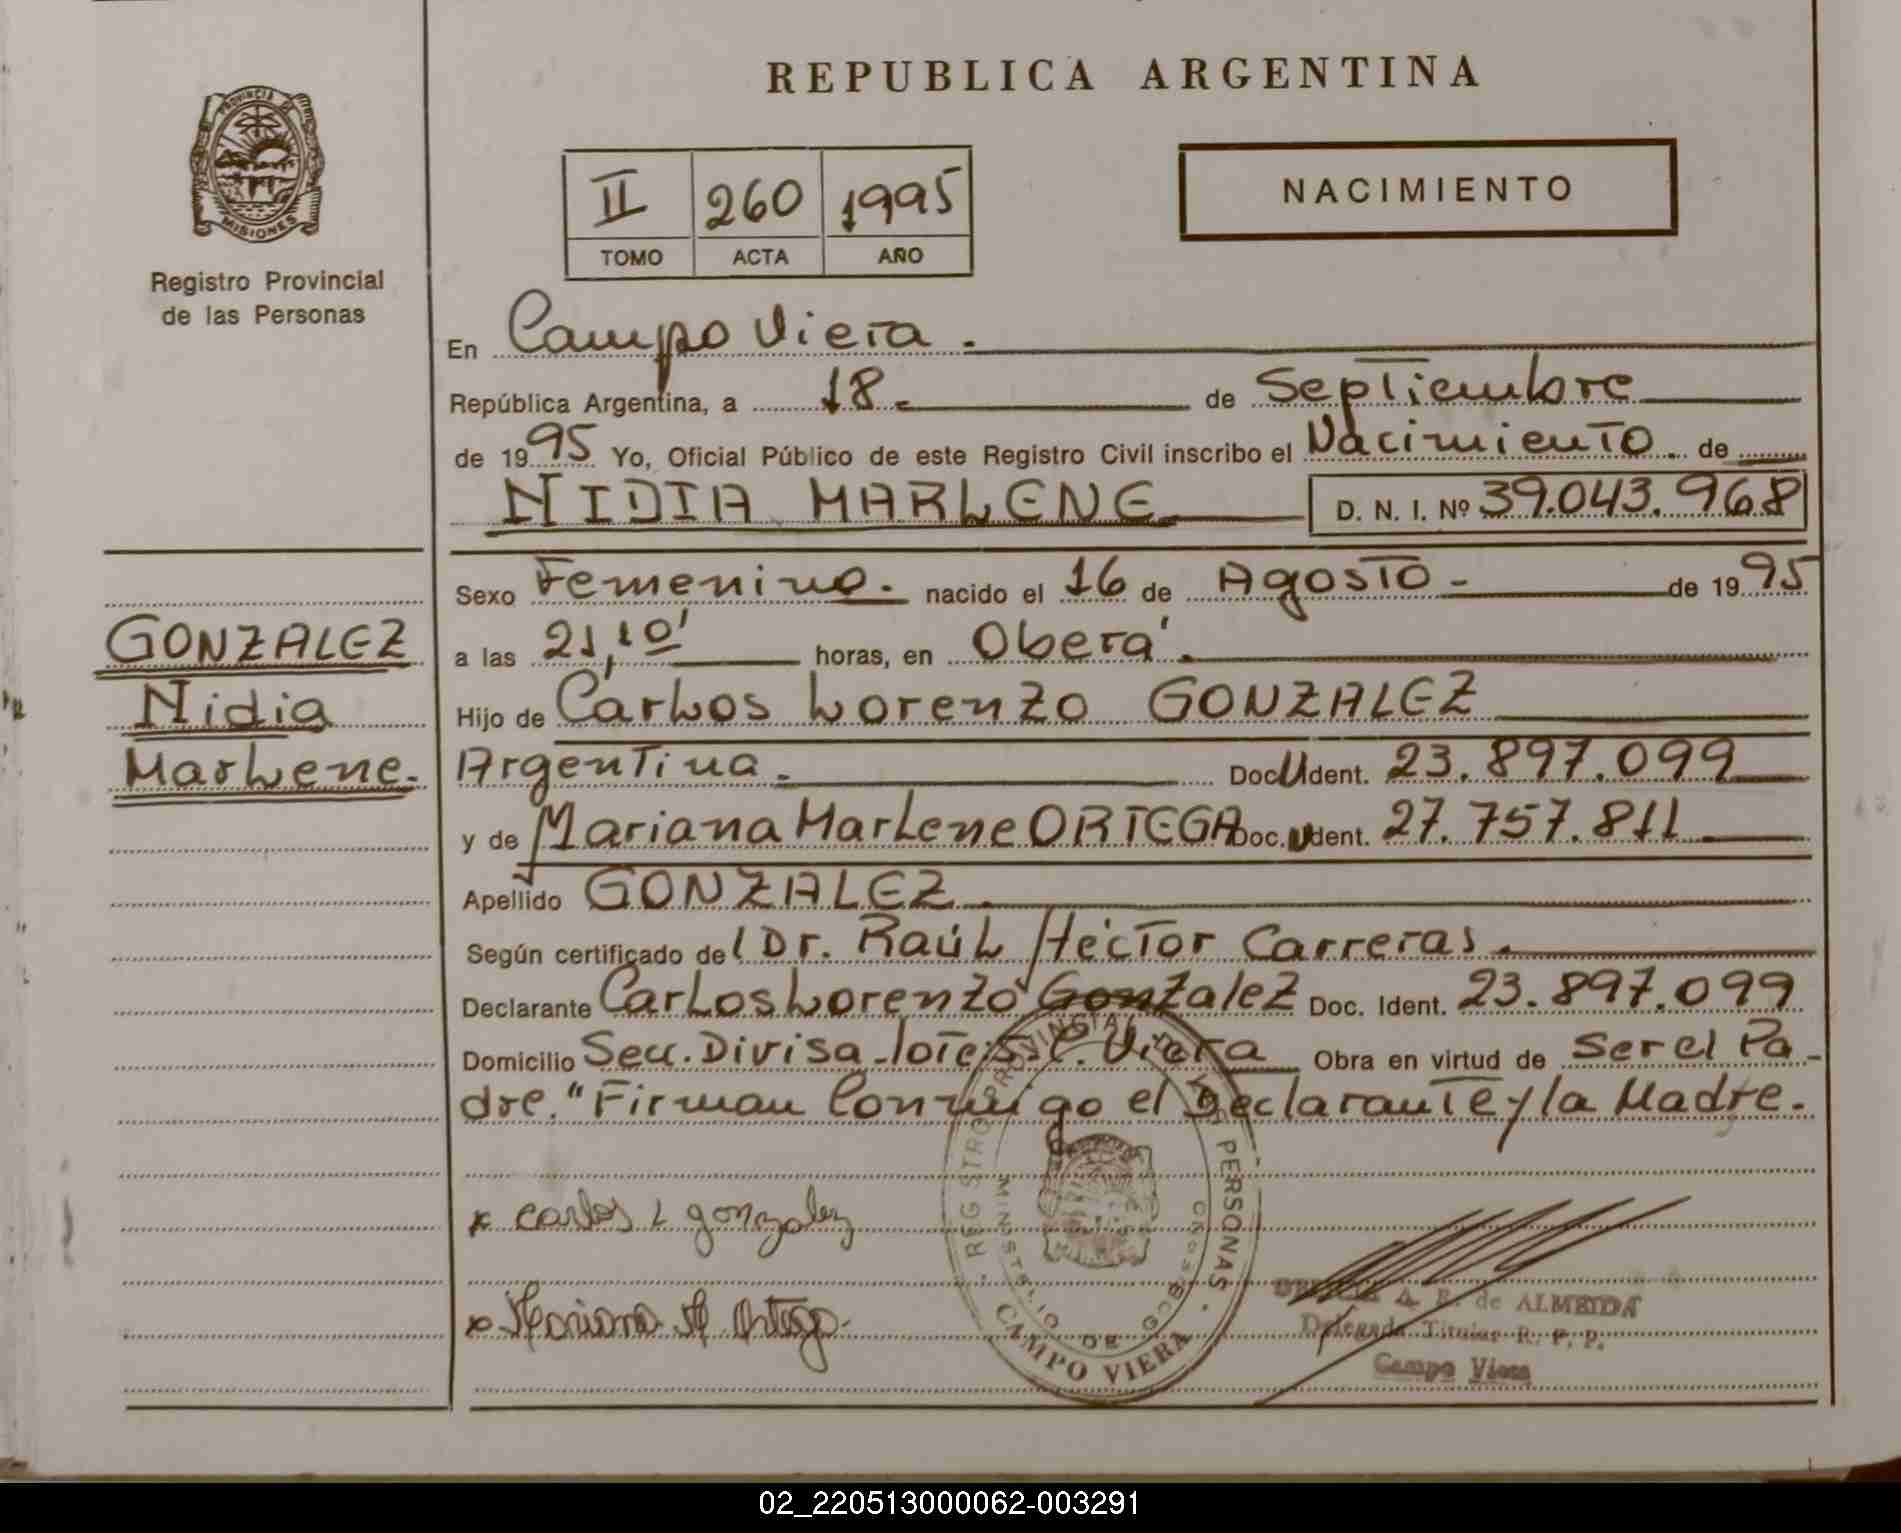 PROVINCIA DE
MISIONES
Registro Provincial
de las Personas
REPUBLICA ARGENTINA
II 260 1995
TOMO ACTA AÑO
NACIMIENTO
En Campo Viera.
República Argentina, a 18. de Septiembre
de 1995 Yo, Oficial Público de este Registro Civil inscribo el Nacimiento de
NIDIA MARLENE D. N. I. Nº 39.043.968
Sexo Femenino. nacido el 16 de Agosto - de 1995
GONZALEZ
Nidia
Marlene.
a las 21,10' horas, en Oberá.
Hijo de Carlos Lorenzo GONZALEZ
Argentina. Doc. U Ident. 23.897.099
y de Mariana Marlene ORTEGA Doc. U Ident. 27.757.811
Apellido GONZALEZ
Según certificado del Dr. Raúl Héctor Carreras.
Declarante Carlos Lorenzo Gonzalez Doc. Ident. 23.897.099
Domicilio Secc. Divisa-lote: S. C. Viera Obra en virtud de Ser el Pa-
dre. "Firman Conmigo el Declarante y la Madre.
x Carlos L gonzalez
x Mariana M Ortega.
REGISTRO PROVINCIAL DE LAS PERSONAS
MINISTERIO DE GOBIERNO
CAMPO VIERA
A. R. de ALMEIDA
Delegada Titular R. P. P.
Campo Viera
02_220513000062-003291